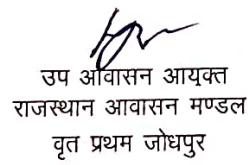 उप आवासन आयुक्त
राजस्थान आवासन मण्डल
वृत प्रथम जोधपुर